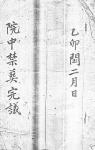 乙卯閏二月日
院中禁奠完議